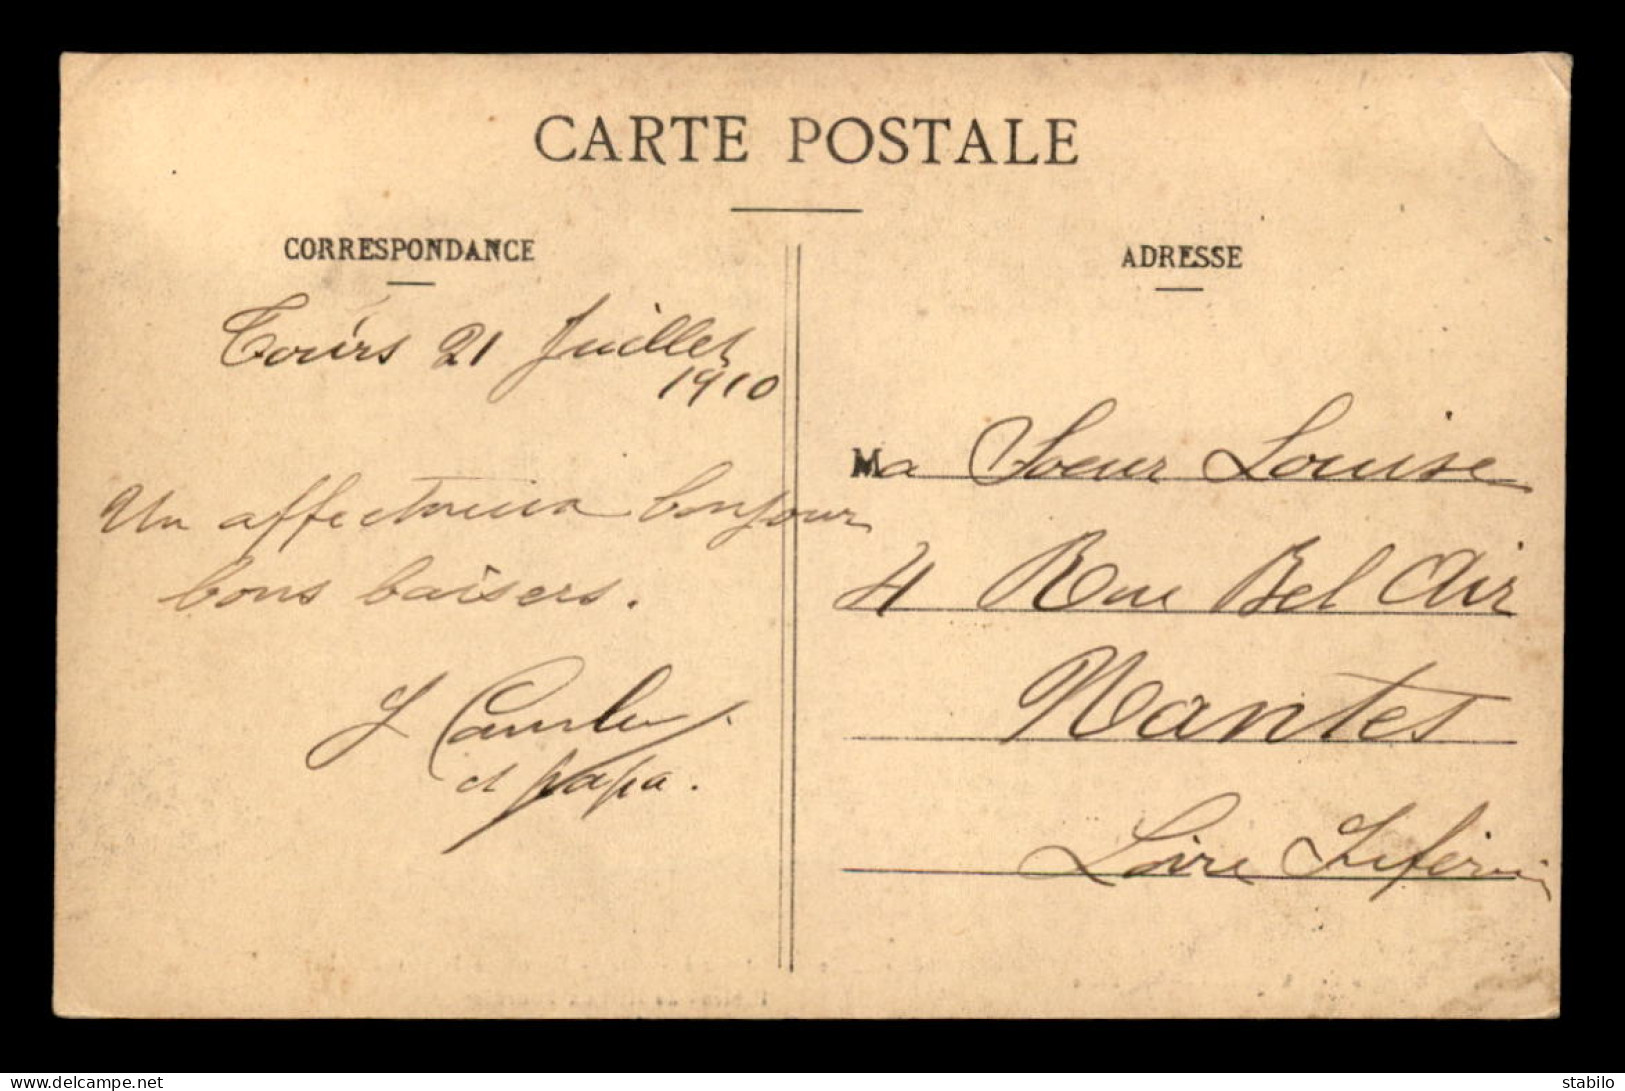 CARTE POSTALE
CORRESPONDANCE
Tours 21 Juillet
1910
Un affectueux bonjour
bons baisers.
et papa.
ADRESSE
Ma Soeur Louise
4 Rue Bel Air
Nantes
Loire Inférie
delcampe.net
stabilo